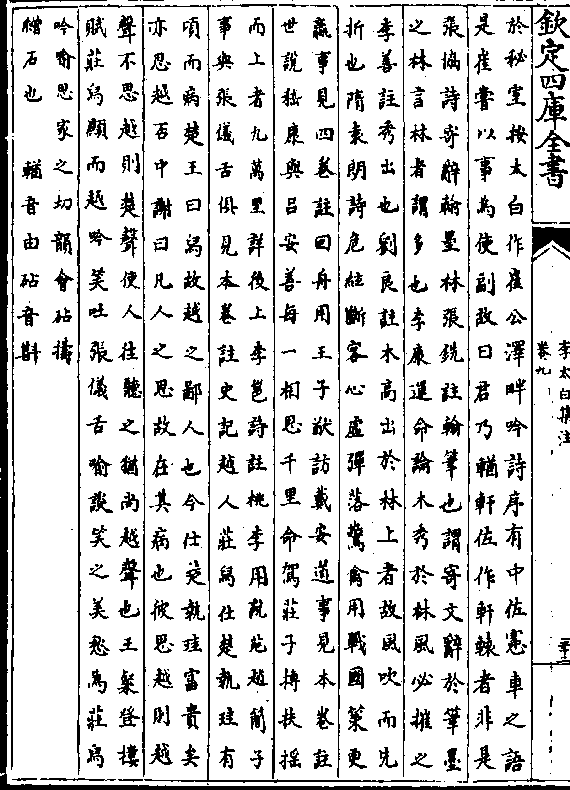 欽定四庫全書
李太白集注
卷九
於秘室按太白作崔公澤畔吟詩序有中佐憲車之語
是崔嘗以事為使副故曰君乃輶軒佐作軒轅者非是
張協詩寄辭翰墨林張銑註翰筆也謂寄文辭於筆墨
之林言林者謂多也李康運命論木秀於林風必摧之
李善註秀出也劉良註木高出於林上者故風吹而先
折也隋袁朗詩危絃斷客心虛彈落驚禽用戰國策更
羸事見四卷註囘舟用王子猷訪戴安道事見本卷註
世說嵇康與呂安善每一相思千里命駕莊子摶扶搖
而上者九萬里詳後上李邕詩註桃李用說苑趙簡子
事與張儀舌俱見本卷註史記越人莊舄仕楚執珪有
頃而病楚王曰舄故越之鄙人也今仕楚執珪富貴矣
亦思越否中謝曰凡人之思故在其病也彼思越則越
聲不思越則楚聲使人往聽之猶尚越聲也王粲登樓
賦莊舄顯而越吟笑吐張儀舌喻談笑之美愁為莊舄
吟喻思家之切韻會砧擣
繒石也　輶音由砧音斟